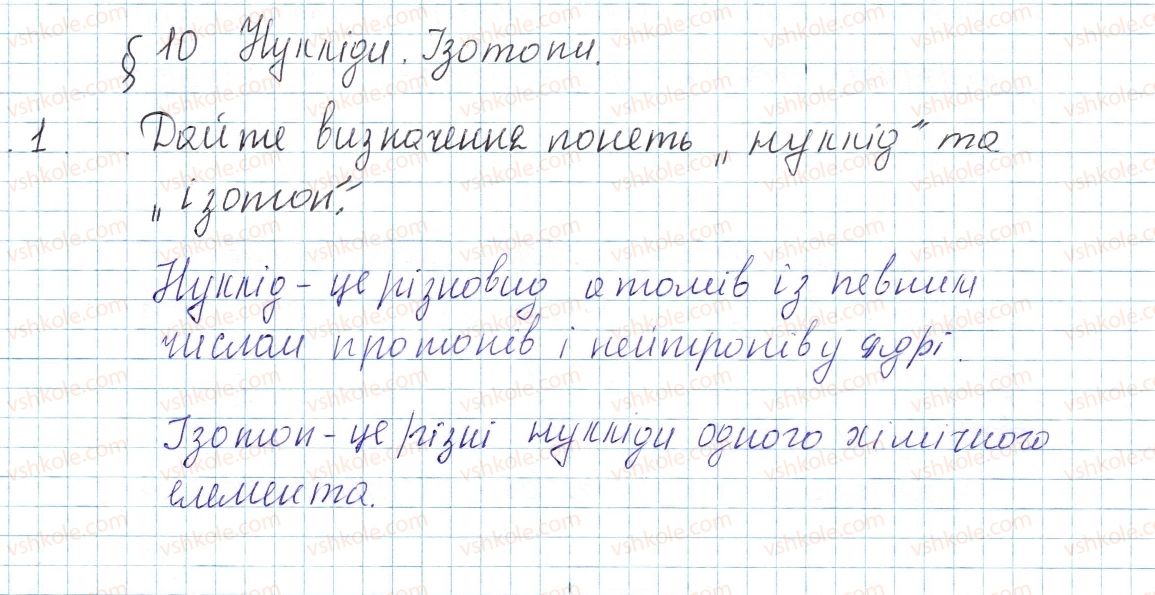 § 10 Нукліди. Ізотопи.
1 Дайте визначення понеть „нуклід" та
„ізотоп".
Нуклід - це різновид атомів із певним
числом протонів і нейтронів у ядрі.
Ізотоп - це різні нукліди одного хімічного
елемента.